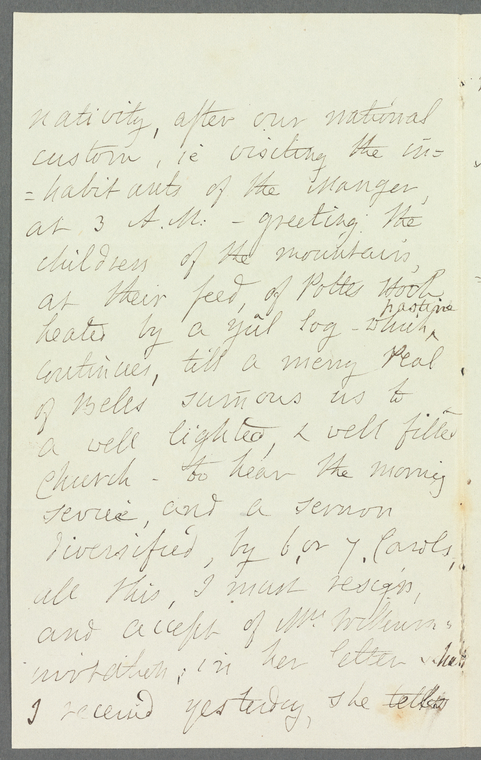 nativity, after our national
custom, ie visiting the in=
=habitants of the Manger,
at 3 A.M. - greeting the
children of the mountains,
at their feed, of Potts
heated by a Yül log - which
pastime
continues, till a merry Peal
of Bells sumons us to
a well lighted, & well filled
Church - to hear the morning
service, and a sermon
diversified, by 6 or 7 Carols,
all this, I must resign,
and accept of Mrs
invitation; in her letter
I received yesterday, she tells